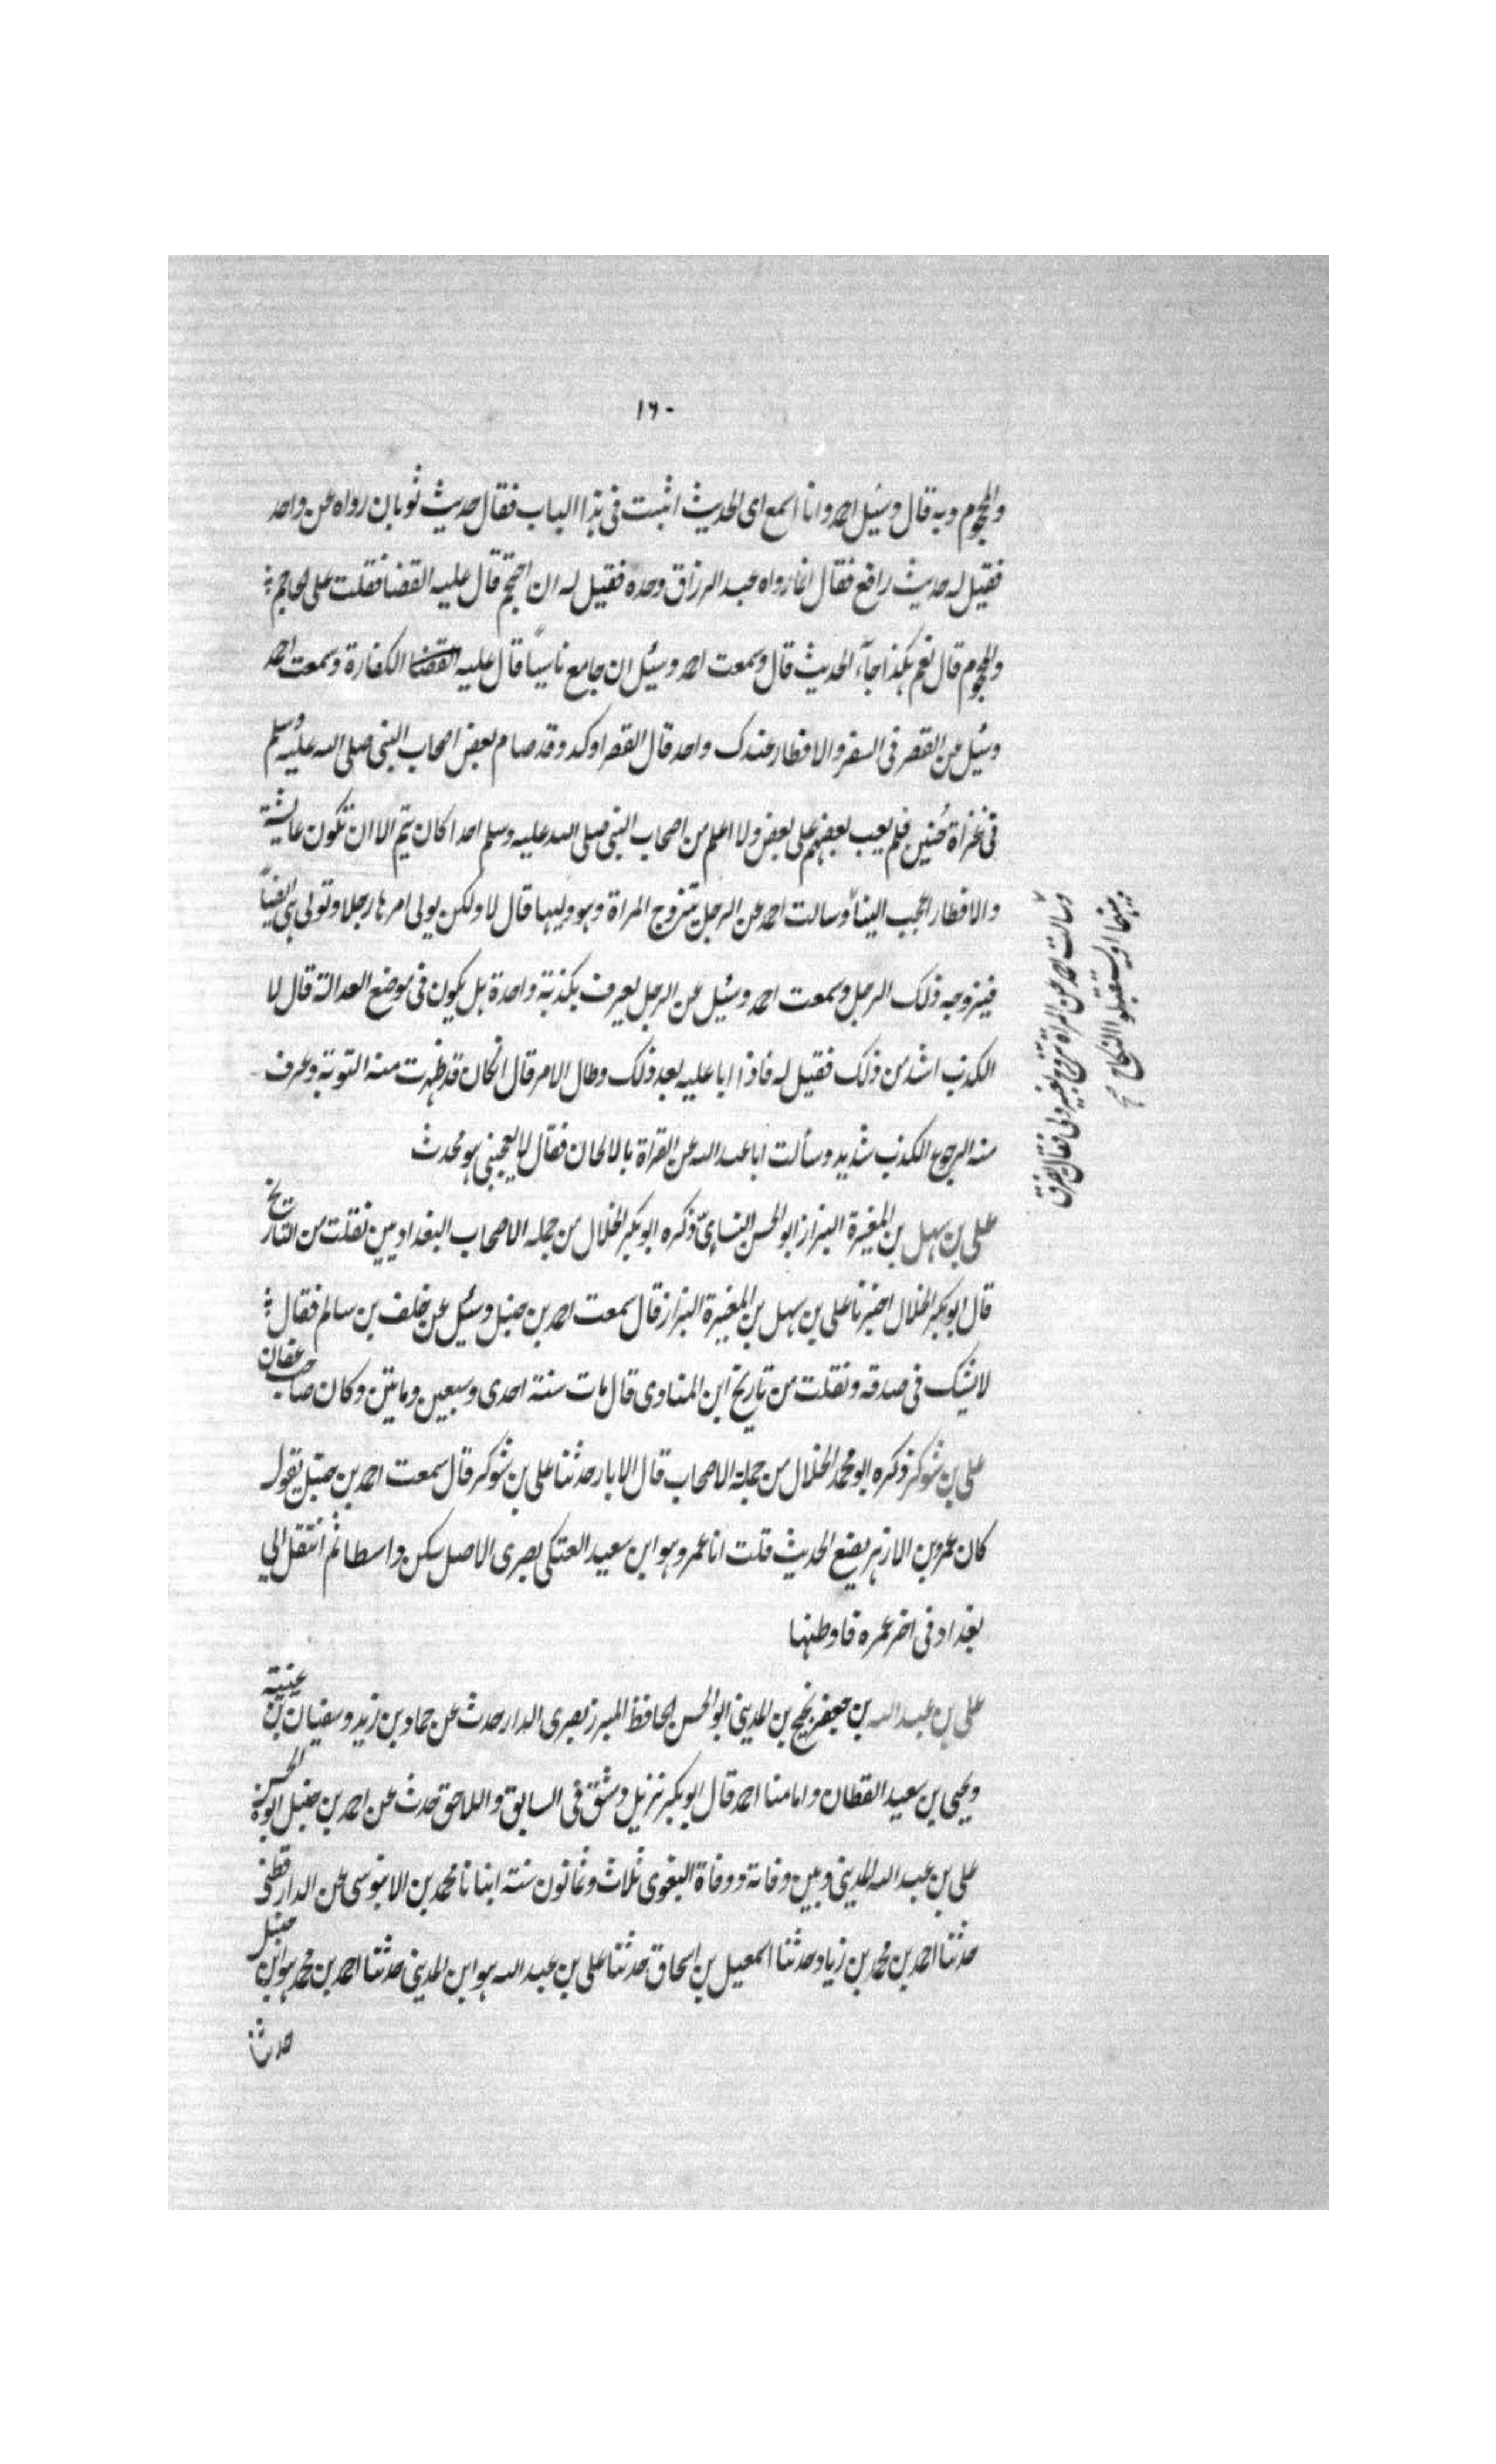 ١٦٠
والمحجوم وبه قال وسئل احمد وانا اسمع اى الحديث اثبت فى هذا الباب فقال حديث ثوبان رواه عن واحد
فقيل له حديث رافع فقال انما رواه عبد الرزاق وحده فقيل له ان احتجم قال عليه القضا فقلت على الحاجم
والمحجوم قال نعم هكذا جآء الحديث قال وسمعت احمد وسئل ان جامع ناسياً قال عليه القضا الكفارة وسمعت احمد
وسئل عن القصر فى السفر والافطار عندك واحد قال القصر اوكد وقد صام بعض اصحاب النبى صلى الله عليه وسلم
فى غزاة حُنين فلم يعب بعضهم على بعض ولا اعلم من اصحاب النبى صلى الله عليه وسلم احدا كان يتم الا ان تكون عايشة
والافطار اعجب الينا وسالت احمد عن الرجل يتزوج المراة وهو وليها قال لا ولكن يولى امرها رجلا وتولى هى ايضاً
فيزوجه ذلك الرجل وسمعت احمد وسئل عن الرجل يعرف بكذبة واحدة هل يكون فى موضع العدالة قال لا
الكذب اشد من ذلك فقيل له فاذا ابا عليه بعد ذلك وطال الامر قال انكان قد ظهرت منه التوبة وعرف
منه الرجوع الكذب شديد وسألت ابا عبد الله عن القراة بالالحان فقال لا يعجبنى هو محدث
على بن سهل بن المغيرة البزاز ابو الحسن النسايىّ ذكره ابو بكر الخلال من جمله الاصحاب البغداديين نقلت من التاريخ
قال ابو بكر الخلال اخبرنا على بن سهل بن المغيرة البزاز قال سمعت احمد بن حنبل وسئل عن خلف بن سالم فقال
لا يشك فى صدقه ونقلت من تاريخ ابن المناوى قال مات سنة احدى وسبعين ومايتين وكان صاحب عفان
على بن شوكر ذكره ابو محمد الخلال من جملة الاصحاب قال الابار حدثنا على بن شوكر قال سمعت احمد بن حنبل يقول
كان عمرو بن الازهر يضع الحديث قلت انا عمرو هو ابن سعيد العتكى بصرى الاصل سكن واسطا ثم انتقل الى
بغداد فى اخر عمره فاوطنها
على بن عبد الله بن جعفر نجيح بن المدينى ابو الحسن الحافظ المبرز بصرى الدار حدث عن حماد بن زيد وسفيان بن عيينة
ويحيى بن سعيد القطان وامامنا احمد قال ابو بكر نزيل دمشق فى السابق واللاحق حدث عن احمد بن حنبل ابو الحسن
على بن عبد الله المدينى وبين وفاته ووفاة البغوى ثلاث وثمانون سنة انبانا محمد بن الابنوسى عن الدارقطنى
حدثنا احمد بن محمد بن زياد حدثنا اسمعيل بن اسحاق حدثنا على بن عبد الله هو ابن المدينى حدثنا احمد بن محمد هو ابن حنبل
حدثنا
وسالت احمد عن المراة تزوج بغير ولى فقال يفرق
بينهما او يستقبلوا النكاح صح